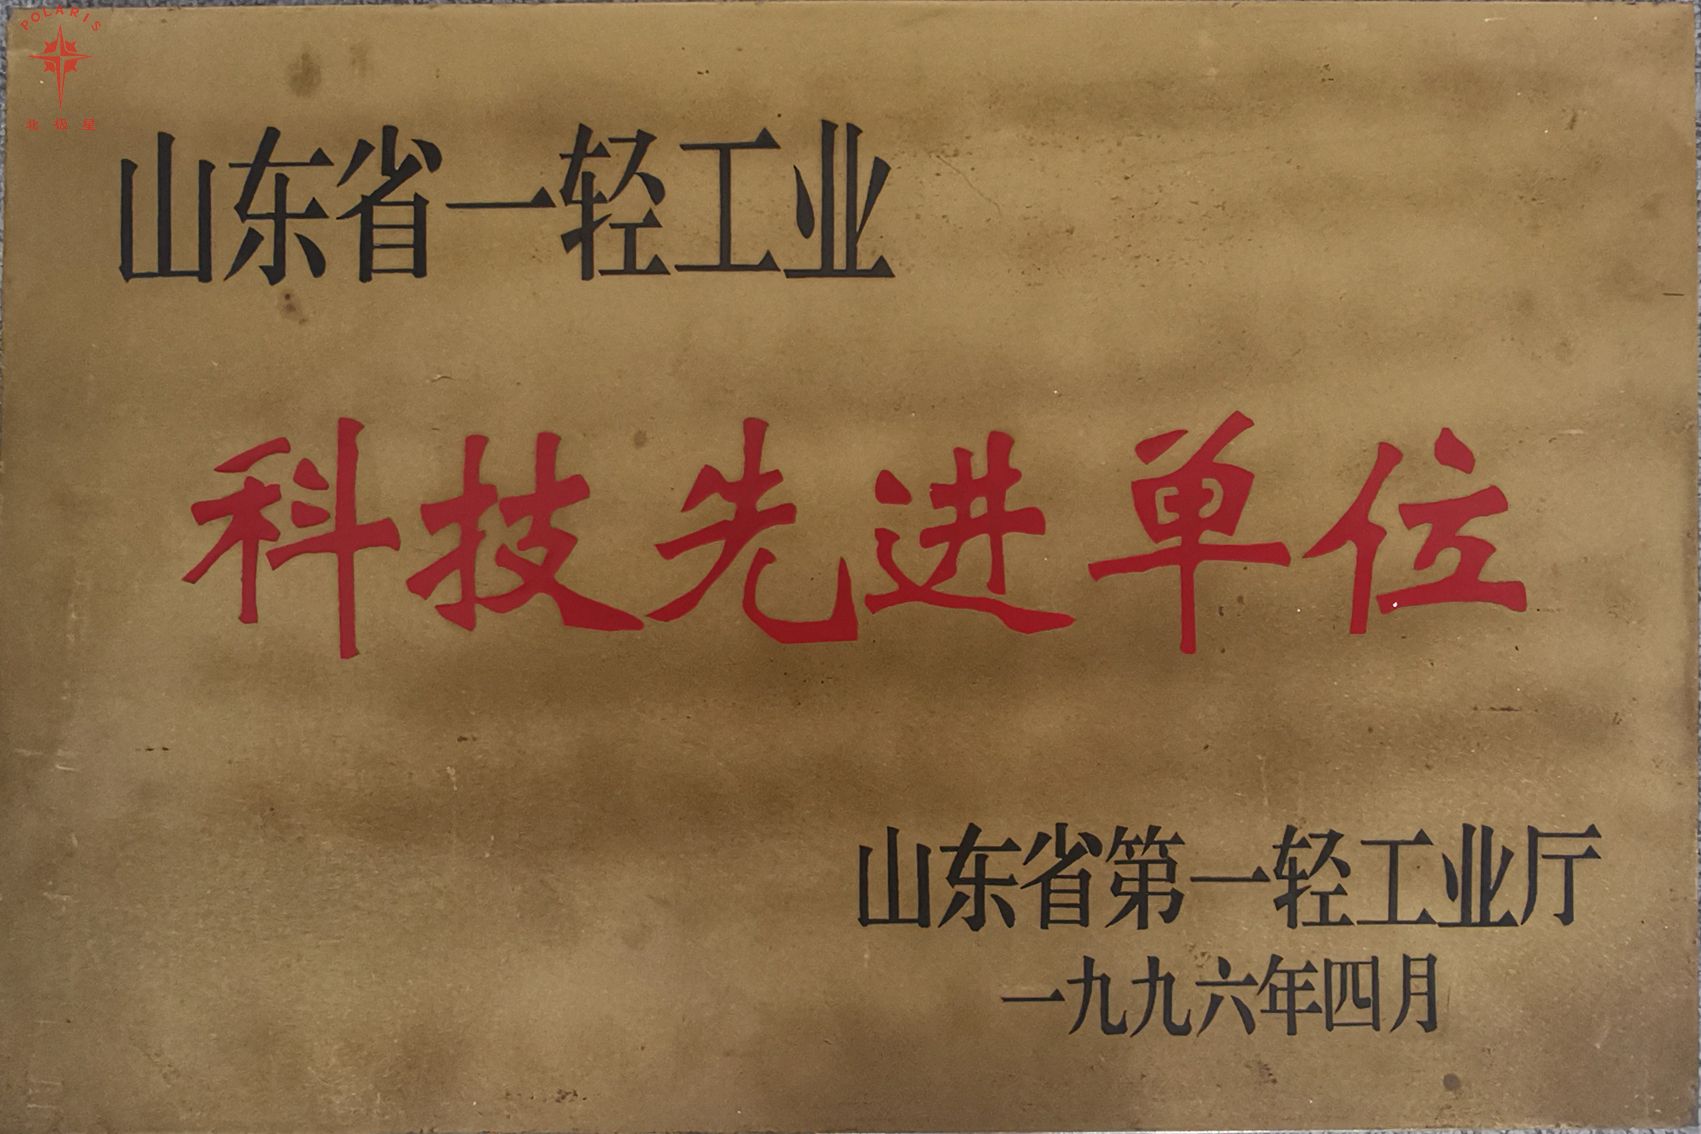 POLARIS
北极星
山东省一轻工业
科技先进单位
山东省第一轻工业厅
一九九六年四月